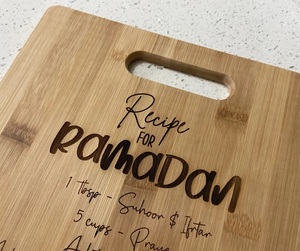 Recipe
FOR
Ramadan
1 tbsp - Suhoor & Iftar
5 cups -